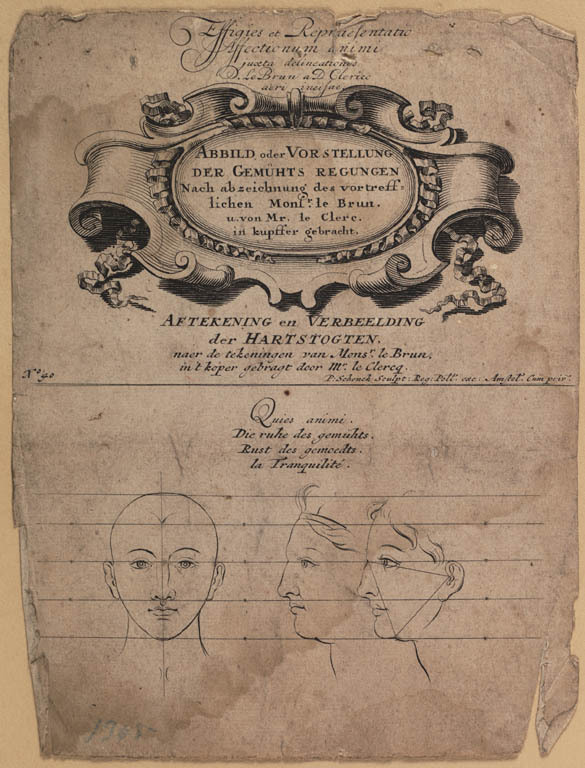 Effigies et Repræsentatio
Affectionum animi
juxta delineationes
D. Le Brun a D. Clerice
aeri incisae
ABBILD. oder VORSTELLUNG
DER GEMÜHTS REGUNGEN
Nach abzeichnung des vortreff-
lichen Monsr. le Brun.
u. von Mr. le Clerc.
in kupffer gebracht.
AFTEKENING en VERBEELDING
der HARTSTOGTEN,
naer de tekeningen van Monsr. le Brun,
in't koper gebragt door Mr. le Clercq.
No. 40
P. Schenck Sculpt: Reg: Poll. exc: Amstel. Cum privil.
Quies animi.
Die ruhe des gemühts.
Rust des gemoedts.
la Tranquilité.